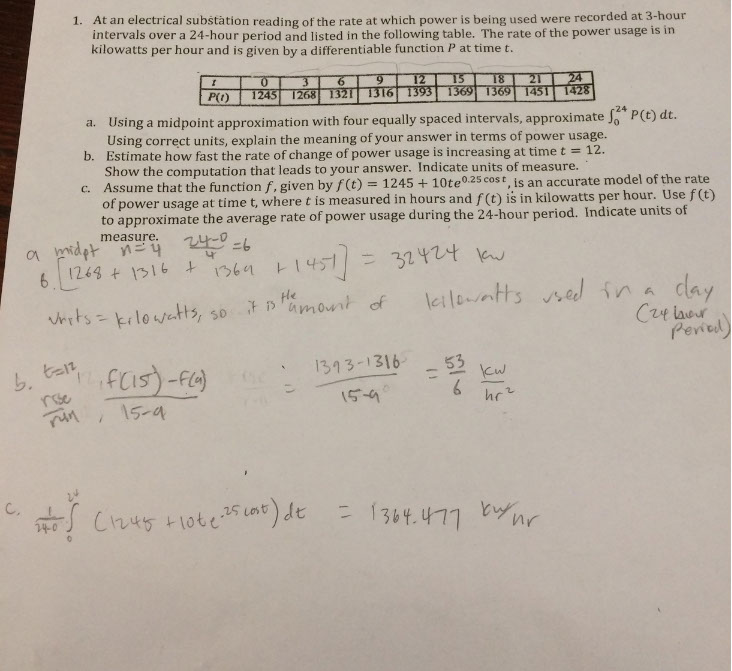 1. At an electrical substation reading of the rate at which power is being used were recorded at 3-hour
intervals over a 24-hour period and listed in the following table. The rate of the power usage is in
kilowatts per hour and is given by a differentiable function P at time t.
t 0 3 6 9 12 15 18 21 24
P(t) 1245 1268 1321 1316 1393 1369 1369 1451 1428
a. Using a midpoint approximation with four equally spaced intervals, approximate ∫₀²⁴ P(t) dt.
Using correct units, explain the meaning of your answer in terms of power usage.
b. Estimate how fast the rate of change of power usage is increasing at time t = 12.
Show the computation that leads to your answer. Indicate units of measure.
c. Assume that the function f, given by f(t) = 1245 + 10te^(0.25 cos t), is an accurate model of the rate
of power usage at time t, where t is measured in hours and f(t) is in kilowatts per hour. Use f(t)
to approximate the average rate of power usage during the 24-hour period. Indicate units of
measure.
a midpt n=4 (24-0)/4 = 6
6[1268 + 1316 + 1369 + 1451] = 32424 kw
units = kilowatts, so it is the amount of kilowatts used in a day
(24 hour
Period)
b. t=12 rise/run, (f(15)-f(9))/(15-9) = (1393-1316)/(15-9) = 53/6 kw/hr²
c. 1/(24-0) ∫₀²⁴ (1245 + 10te^(.25 cos t)) dt = 1364.477 kw/hr